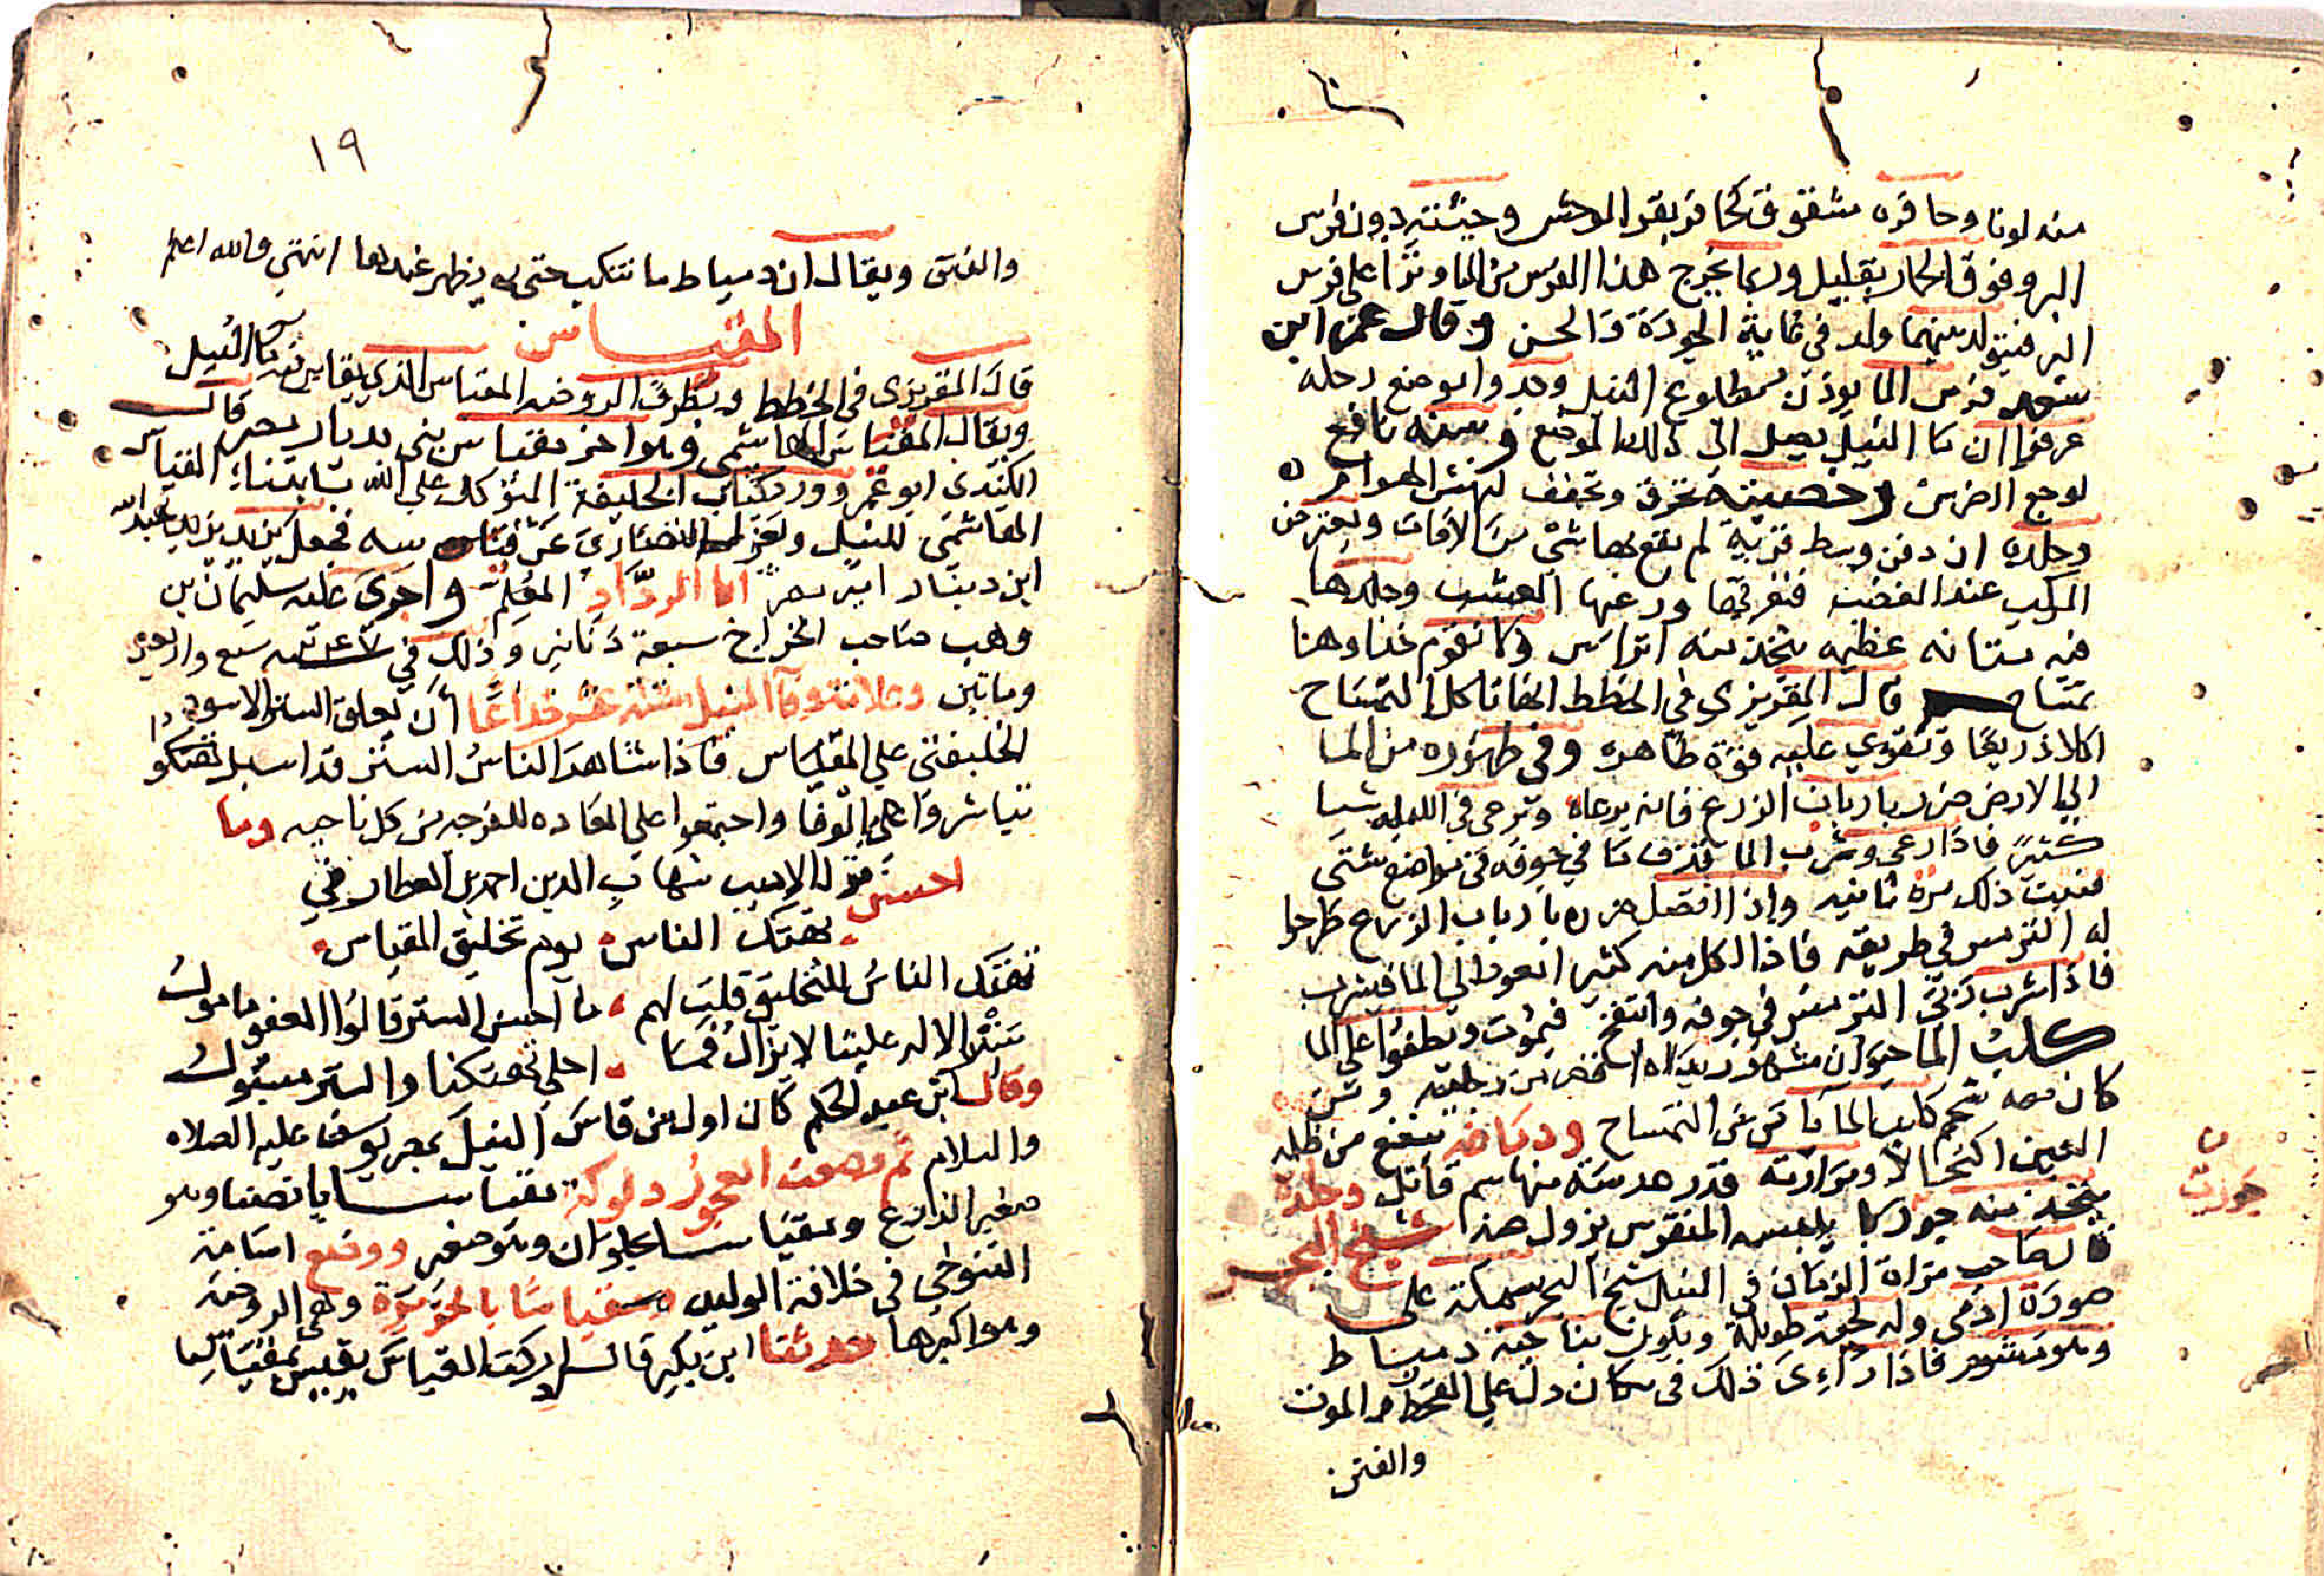 منه لونا وحافره مشقوق كحافر بقر الوحش وجثته دون فرس
البر وفوق الحمار بقليل وربما يخرج هذا الفرس من الما ونزا على فرس
البر فيتولد بينهما ولد في غاية الجودة والحسن وقال عمر ابن
سعد فرس الما يوذن بطلوع النيل وجدوا موضع رجله
عرفوا ان ما النيل يصل الى ذلك الموضع وسنه نافع
لوجع الضرس وخصيته تحرق وتجفف لنهش الهوام
وجلده ان دفن وسط قرية لم يقع بها شي من الافات ويعترض
المركب عند الغضب فيغرقها ورعيها العشب وجلدها
فيه متانه عظيمه يتخذ منه اتراس
تمساح قال المقريزي في الخطط انها تاكل التمساح
اكلا ذريعا وتقوي عليه قوة ظاهره وفي ظهوره من الما
الي الارض ضرر بارباب الزرع فانه يرعاه وترعى في الليله شيا
كثير فاذا رعى وشرب الما قذف ما في جوفه في مواضع شتى
فينبت ذلك مرة ثانيه واذا اتصل ضرره بارباب الزرع طرحوا
له الترمس في طريقه فاذا اكل منه كثيرا يعود الي الما فيشرب
فاذا شرب ربى الترمس في جوفه وانتفخ فيموت ويطفوا على الما
كلب الما حيوان مشهور يداه اقصر من رجليه ومن
كان معه شحم كلب الما يامن من التمساح ودماغه ينفع من ظلمه
العين اكتحالا ومرارته قدر عدسة منها سم قاتل وجلده
يتخذ منه جوربا يلبسه المنقرس يزول عنه شيخ البحر
قال صاحب مراة الزمان في النيل شيخ البحر سمكة على
صورة ادمي وله لحية طويلة ويكون بناحية دمياط
وهو مشوم فاذا راءى ذلك في مكان دل علي القحط والموت
والفتن
جورب
١٩
والفتن ويقال ان دمياط ما تنكب حتى يظهر عندها انتهى والله اعلم
المقياس
قال المقريزى في الخطط وبطرف الروضه المقياس الذي يقاس فيه ما النيل
ويقال المقياس الهاشمي وهو اخر مقياس بني بديار مصر قال
الكندى ابو عمر وورد كتاب الخليفة المتوكل علي الله بابتناء المقياس
الهاشمي للنيل وبعزل النصاري عن قياسه فجعل يزيد بن عبد الله
ابن دينار امير مصر ابا الردّاد المعلم واجرى عليه سليمان بن
وهب صاحب الخراج سبعة دنانير وذلك في سنه سبع واربعين
وماتين وعلامة وفا النيل ستة عشر ذراعا أن يعلق الستر الاسود
الخليفتي علي المقياس فاذا شاهد الناس الستر قد اسبل تهتكوا
تباشروا علي بالوفا واجتمعوا على العاده للفرجه من كل ناحيه وما
احسن قول الاديب شهاب الدين احمد بن العطار في
تهتك الناس يوم تخليق المقياس
تهتك الناس للتخليق قلت لهم ما احسن الستر قالوا العفو مامول
ستر الاله علينا لا يزال فما احلى تهتكنا والستر مسبول
وقال ابن عبد الحكم كان اول من قاس النيل بمصر يوسف عليه الصلاه
والسلام ثم وضعت العجوز دلوكة مقياسا بانصنا وهو
صغير الذارع ومقياسا بحلوان وهو صغير ووضع اسامة
التنوخي في خلافة الوليد مقياسا بالجزيرة وهي الروضة
وهو اكبرها حدثنا ابن بكير قال ادركت القياس يقيس بمقياس